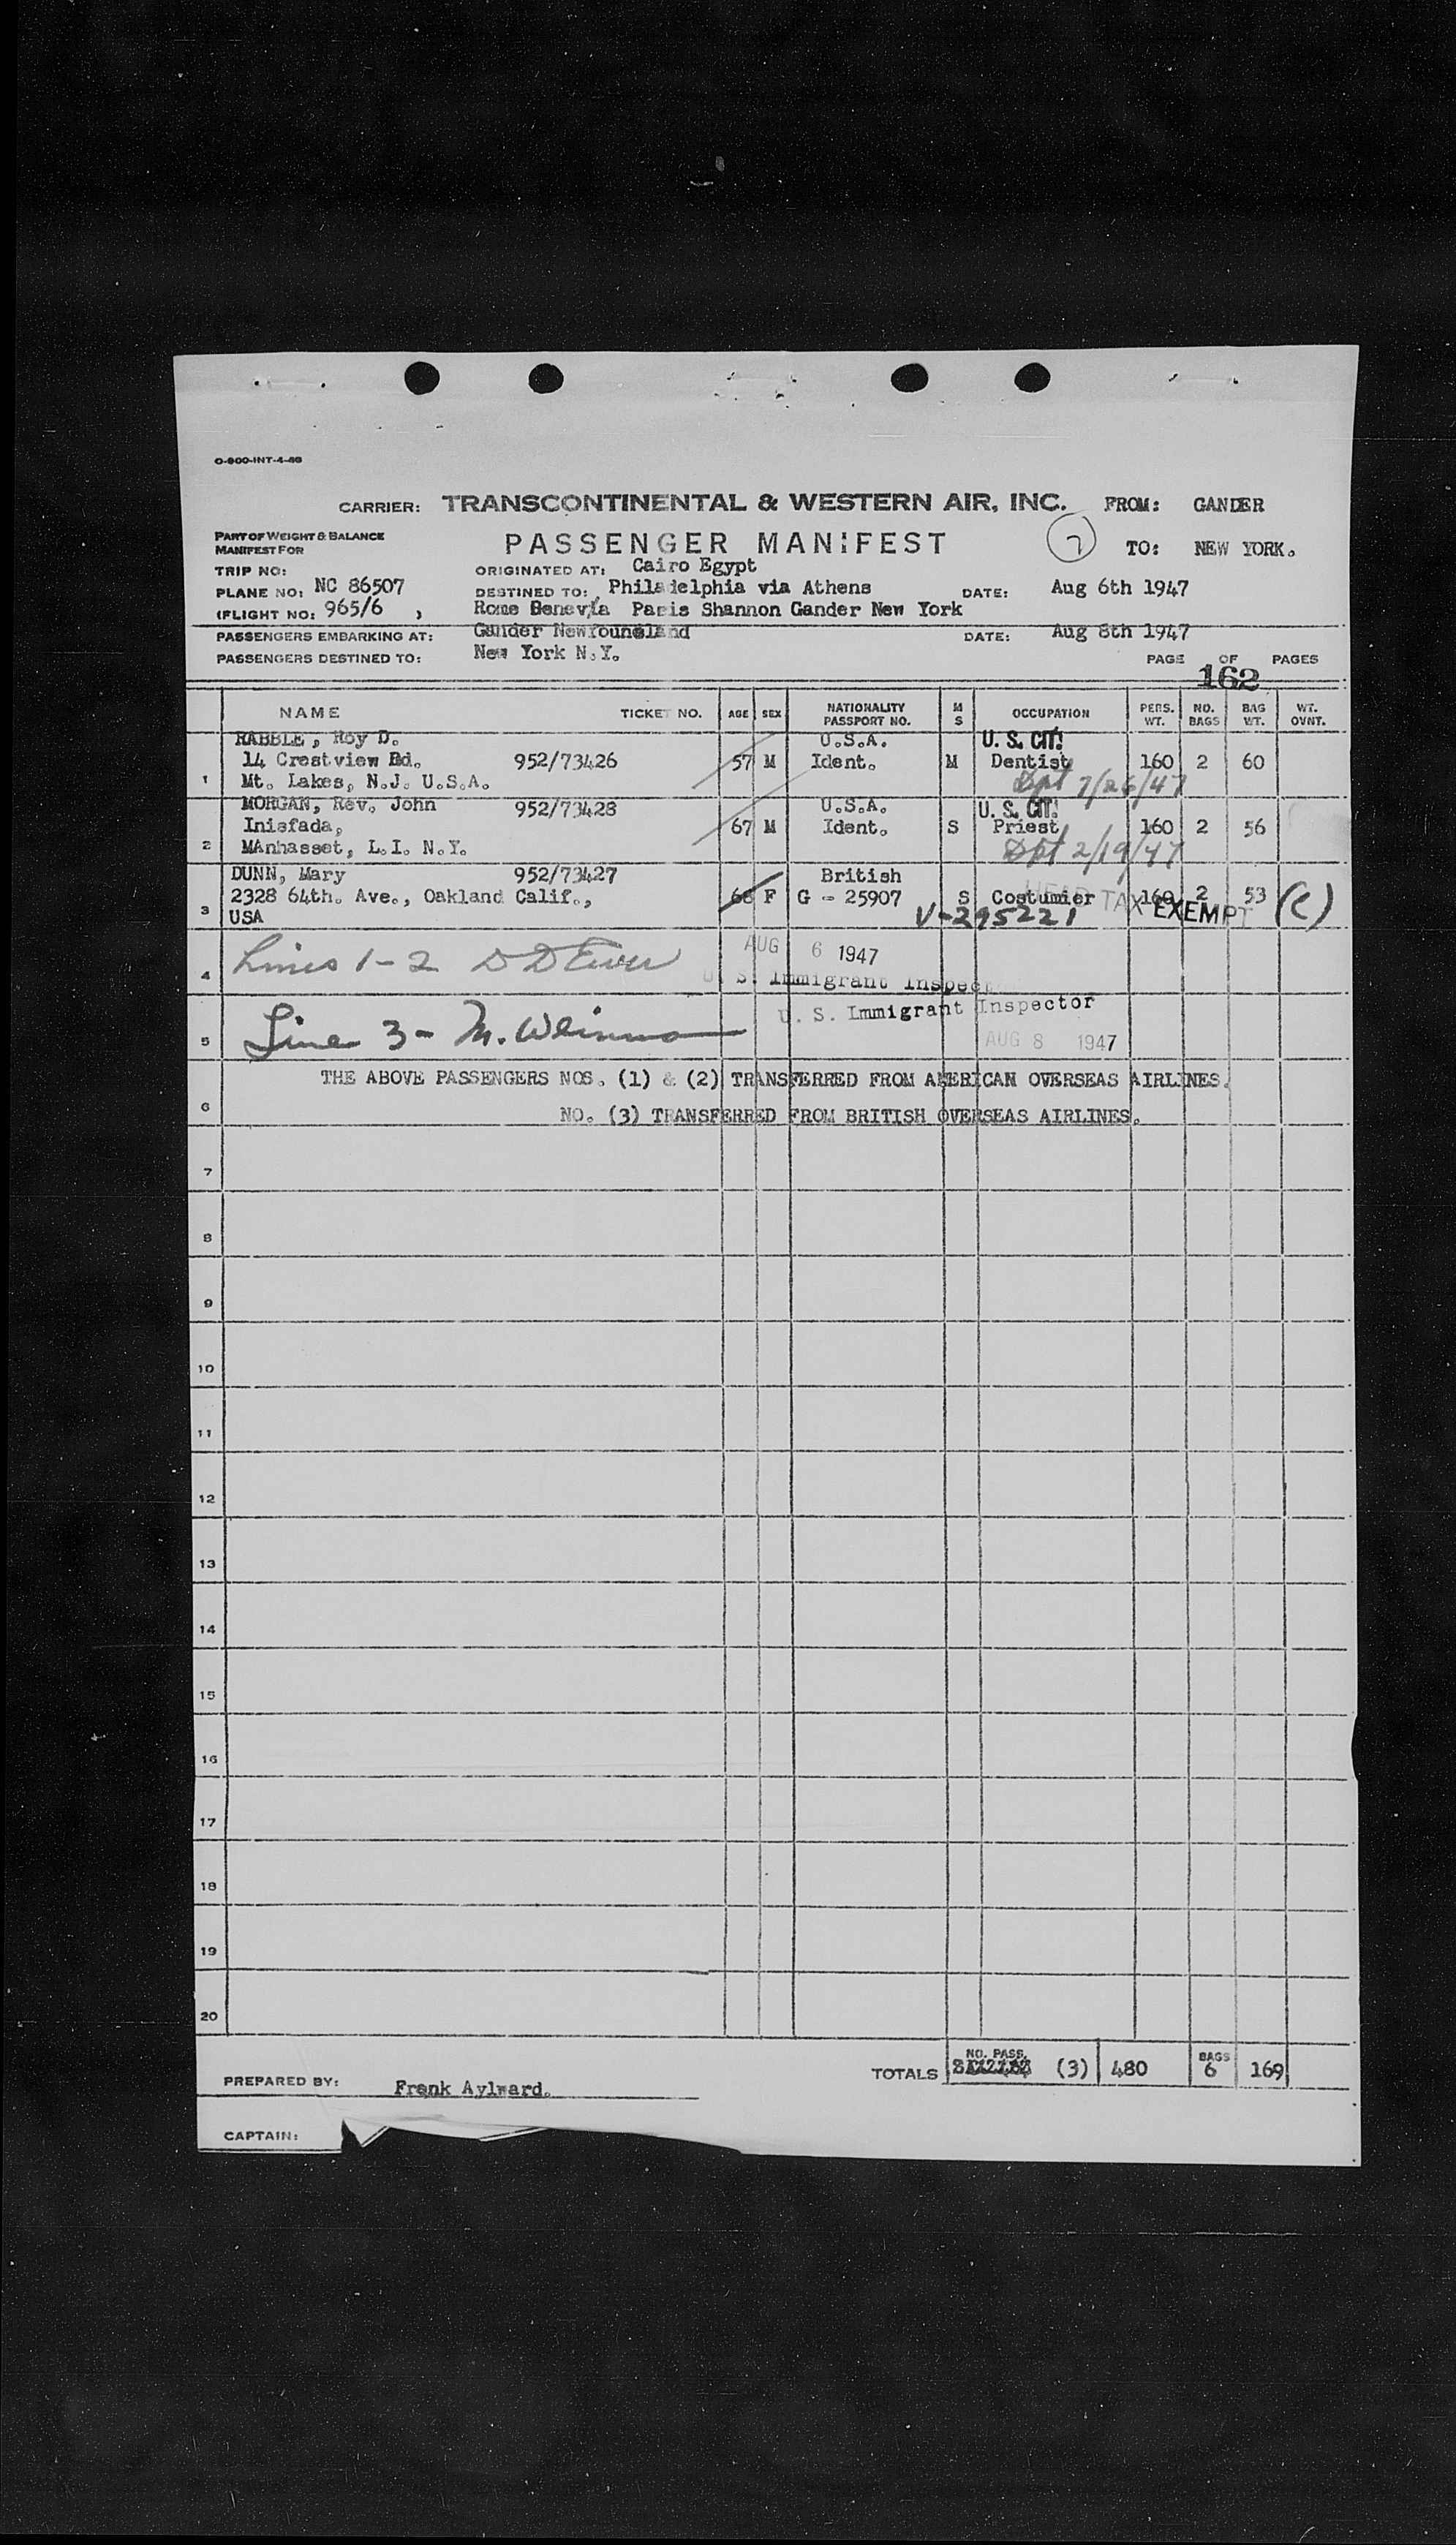 O-800-INT-4-46
CARRIER: TRANSCONTINENTAL & WESTERN AIR, INC. FROM: GANDER
PART OF WEIGHT & BALANCE
MANIFEST FOR
PASSENGER MANIFEST 7 TO: NEW YORK.
TRIP NO: ORIGINATED AT: Cairo Egypt
PLANE NO: NC 86507 DESTINED TO: Philadelphia via Athens DATE: Aug 6th 1947
(FLIGHT NO: 965/6 ) Rome Paris Shannon Gander New York
PASSENGERS EMBARKING AT: Gander Newfoundland DATE: Aug 8th 1947
PASSENGERS DESTINED TO: New York N.Y. PAGE OF PAGES
162
NAME TICKET NO. AGE SEX NATIONALITY PASSPORT NO. M S OCCUPATION PERS. WT. NO. BAGS BAG WT. WT. OVNT.
RABBLE, Roy D. U.S.A. U. S. CIT.
14 Crestview Rd. 952/73426 57 M Ident. M Dentist 160 2 60
1 Mt. Lakes, N.J. U.S.A. Dpt 7/26/47
MORGAN, Rev. John 952/73428 U.S.A. U. S. CIT.
Inisfada, 67 M Ident. S Priest 160 2 56
2 MAnhasset, L.I. N.Y. Dpt 2/19/47
DUNN, Mary 952/73427 British
2328 64th. Ave., Oakland Calif., 68 F G - 25907 S Costumier 160 2 53
3 USA V-295221 HEAD TAX EXEMPT (C)
4 Lines 1-2 AUG 6 1947
U. S. Immigrant Inspector
5 Line 3- U. S. Immigrant Inspector
AUG 8 1947
THE ABOVE PASSENGERS NOS. (1) & (2) TRANSFERRED FROM AMERICAN OVERSEAS AIRLINES.
6 NO. (3) TRANSFERRED FROM BRITISH OVERSEAS AIRLINES.
7
8
9
10
11
12
13
14
15
16
17
18
19
20
TOTALS NO. PASS. (3) 480 BAGS 6 169
PREPARED BY: Frank Aylward.
CAPTAIN: